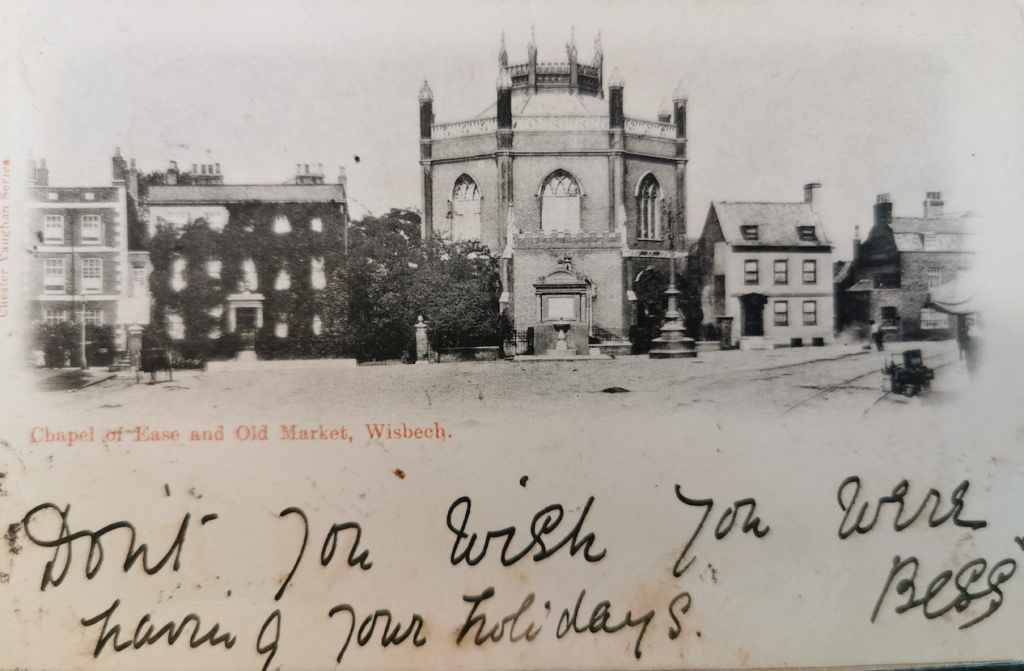 Chester Vaughan Series.
Chapel of Ease and Old Market, Wisbech.
Don't you wish you were
having your holidays.
Bess